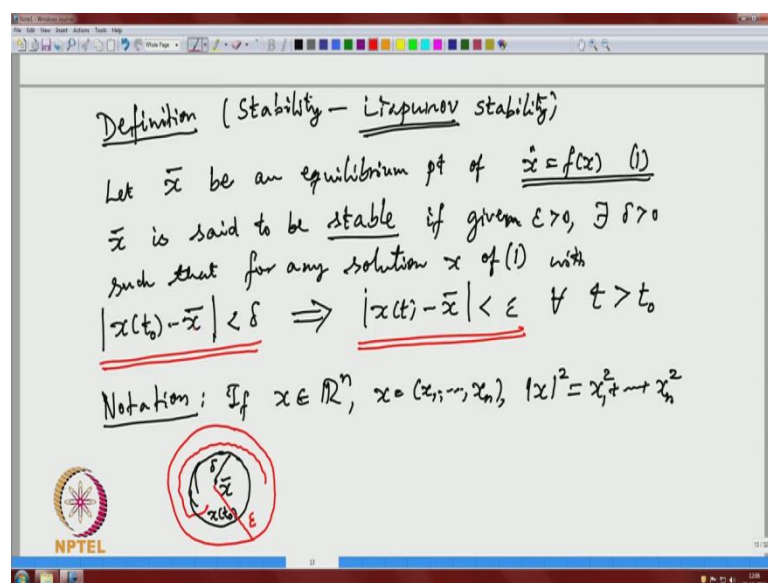 Note1 - Windows Journal
File Edit View Insert Actions Tools Help
Whole Page
Definition (Stability – Liapunov stability)
Let x̄ be an equilibrium pt of ẋ = f(x) (1)
x̄ is said to be stable if given ε>0, ∃ δ>0
such that for any solution x of (1) with
|x(t₀) - x̄| < δ ⇒ |x(t) - x̄| < ε ∀ t > t₀
Notation: If x ∈ ℝⁿ, x = (x₁, ..., xₙ), |x|² = x₁² + ... + xₙ²
δ
x̄
x(t₀)
ε
NPTEL
13
13/32
12:06